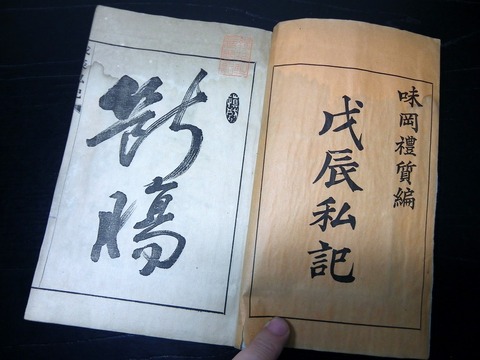 味岡禮質編
戊辰私記
断腸